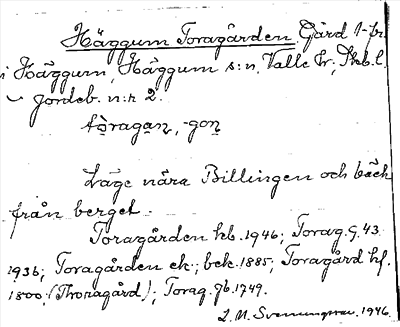 Häggum Toragården Gård 1-fr.
i Häggum, Häggum s:n, Valle hr, Skb.l.
Jordeb. n:r 2.
tòragan, -gon
Läge nära Billingen och bäck
från berget.
Toragården hb. 1946; Torag. G. 43
1936; Toragården ek.; bek. 1885; Toragård hf.
1800; (Thoragård); Torag. gb. 1749.
1946.